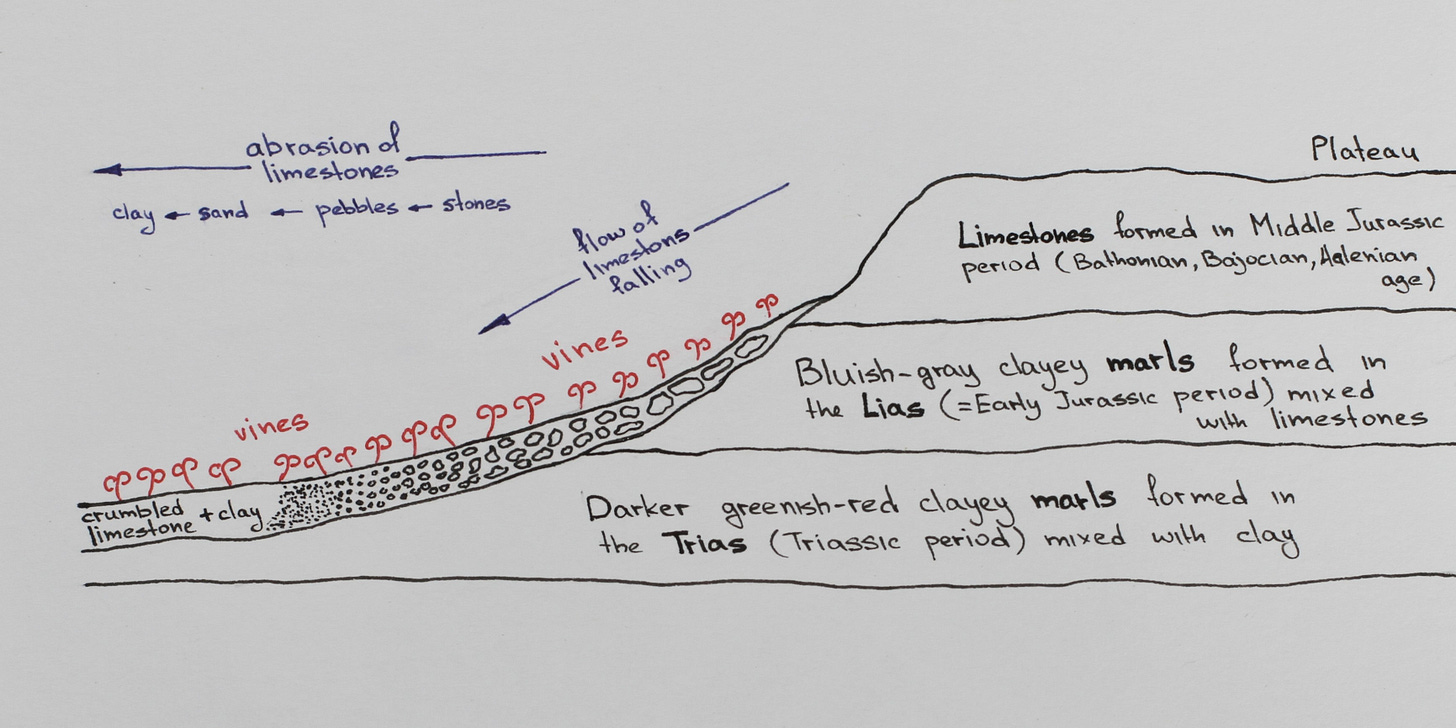 abrasion of
limestones
clay ← sand ← pebbles ← stones
flow of
limestons
falling
vines
vines
crumbled
limestone + clay
Plateau
Limestones formed in Middle Jurassic
period (Bathonian, Bajocian, Aalenian
age)
Bluish-gray clayey marls formed in
the Lias (=Early Jurassic period) mixed
with limestones
Darker greenish-red clayey marls formed in
the Trias (Triassic period) mixed with clay